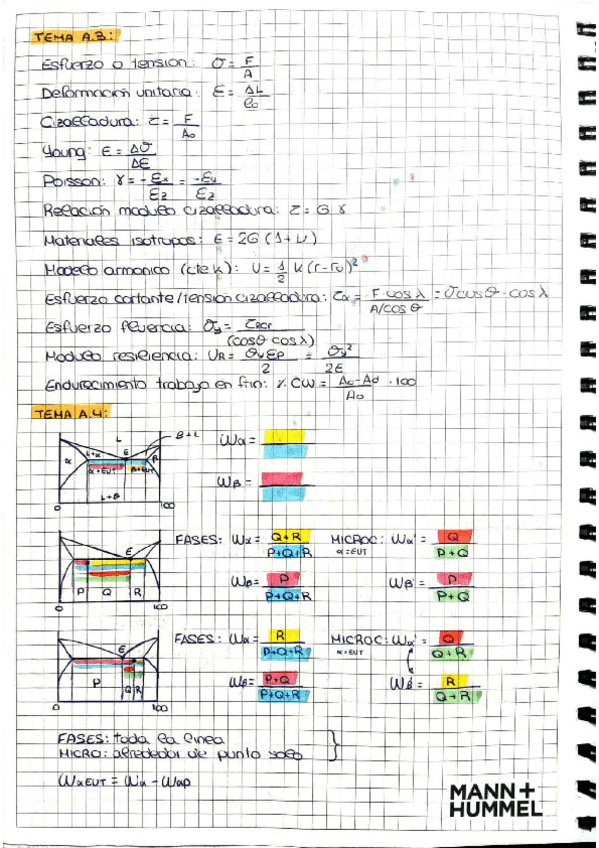 TEMA A.3:
Esfuerzo o tension: σ = F/A
Deformacion unitaria: ε = ΔL/l₀
Cizalladura: τ = F/A₀
Young: E = Δσ/Δε
Poisson: γ = -εx/εz = -εy/εz
Relación modulo cizalladura: τ = G γ
Materiales isotropos: E = 2G (1+ν)
Modelo armonico (cte k): U = 1/2 k (r-r₀)²
Esfuerzo cortante/tension cizalladura: τα = F cos λ / A/cos θ = σ cos θ · cos λ
Esfuerzo fluencia: σy = τRCr / (cosθ cosλ)
Modulo resiliencia: UR = σy εp / 2 = σy² / 2E
Endurecimiento trabajo en frio: % CW = A₀-Ad / A₀ · 100
TEMA A.4:
L
B+L
L+α
E
α
β
α+EUT
β+EUT
L+β
0
100
Wα =
Wβ =
E
P Q R
0
100
FASES: Wα = Q+R / P+Q+R
MICROC: Wα' = Q / P+Q
α=EUT
Wβ = P / P+Q+R
Wβ' = P / P+Q
E
P Q R
0
100
FASES: Wα = R / P+Q+R
MICROC: Wα' = Q / Q+R
α=EUT
Wβ = P+Q / P+Q+R
Wβ' = R / Q+R
FASES: toda la linea
MICRO: alrededor de punto solo
WαEUT = Wα - Wαp
MANN+
HUMMEL